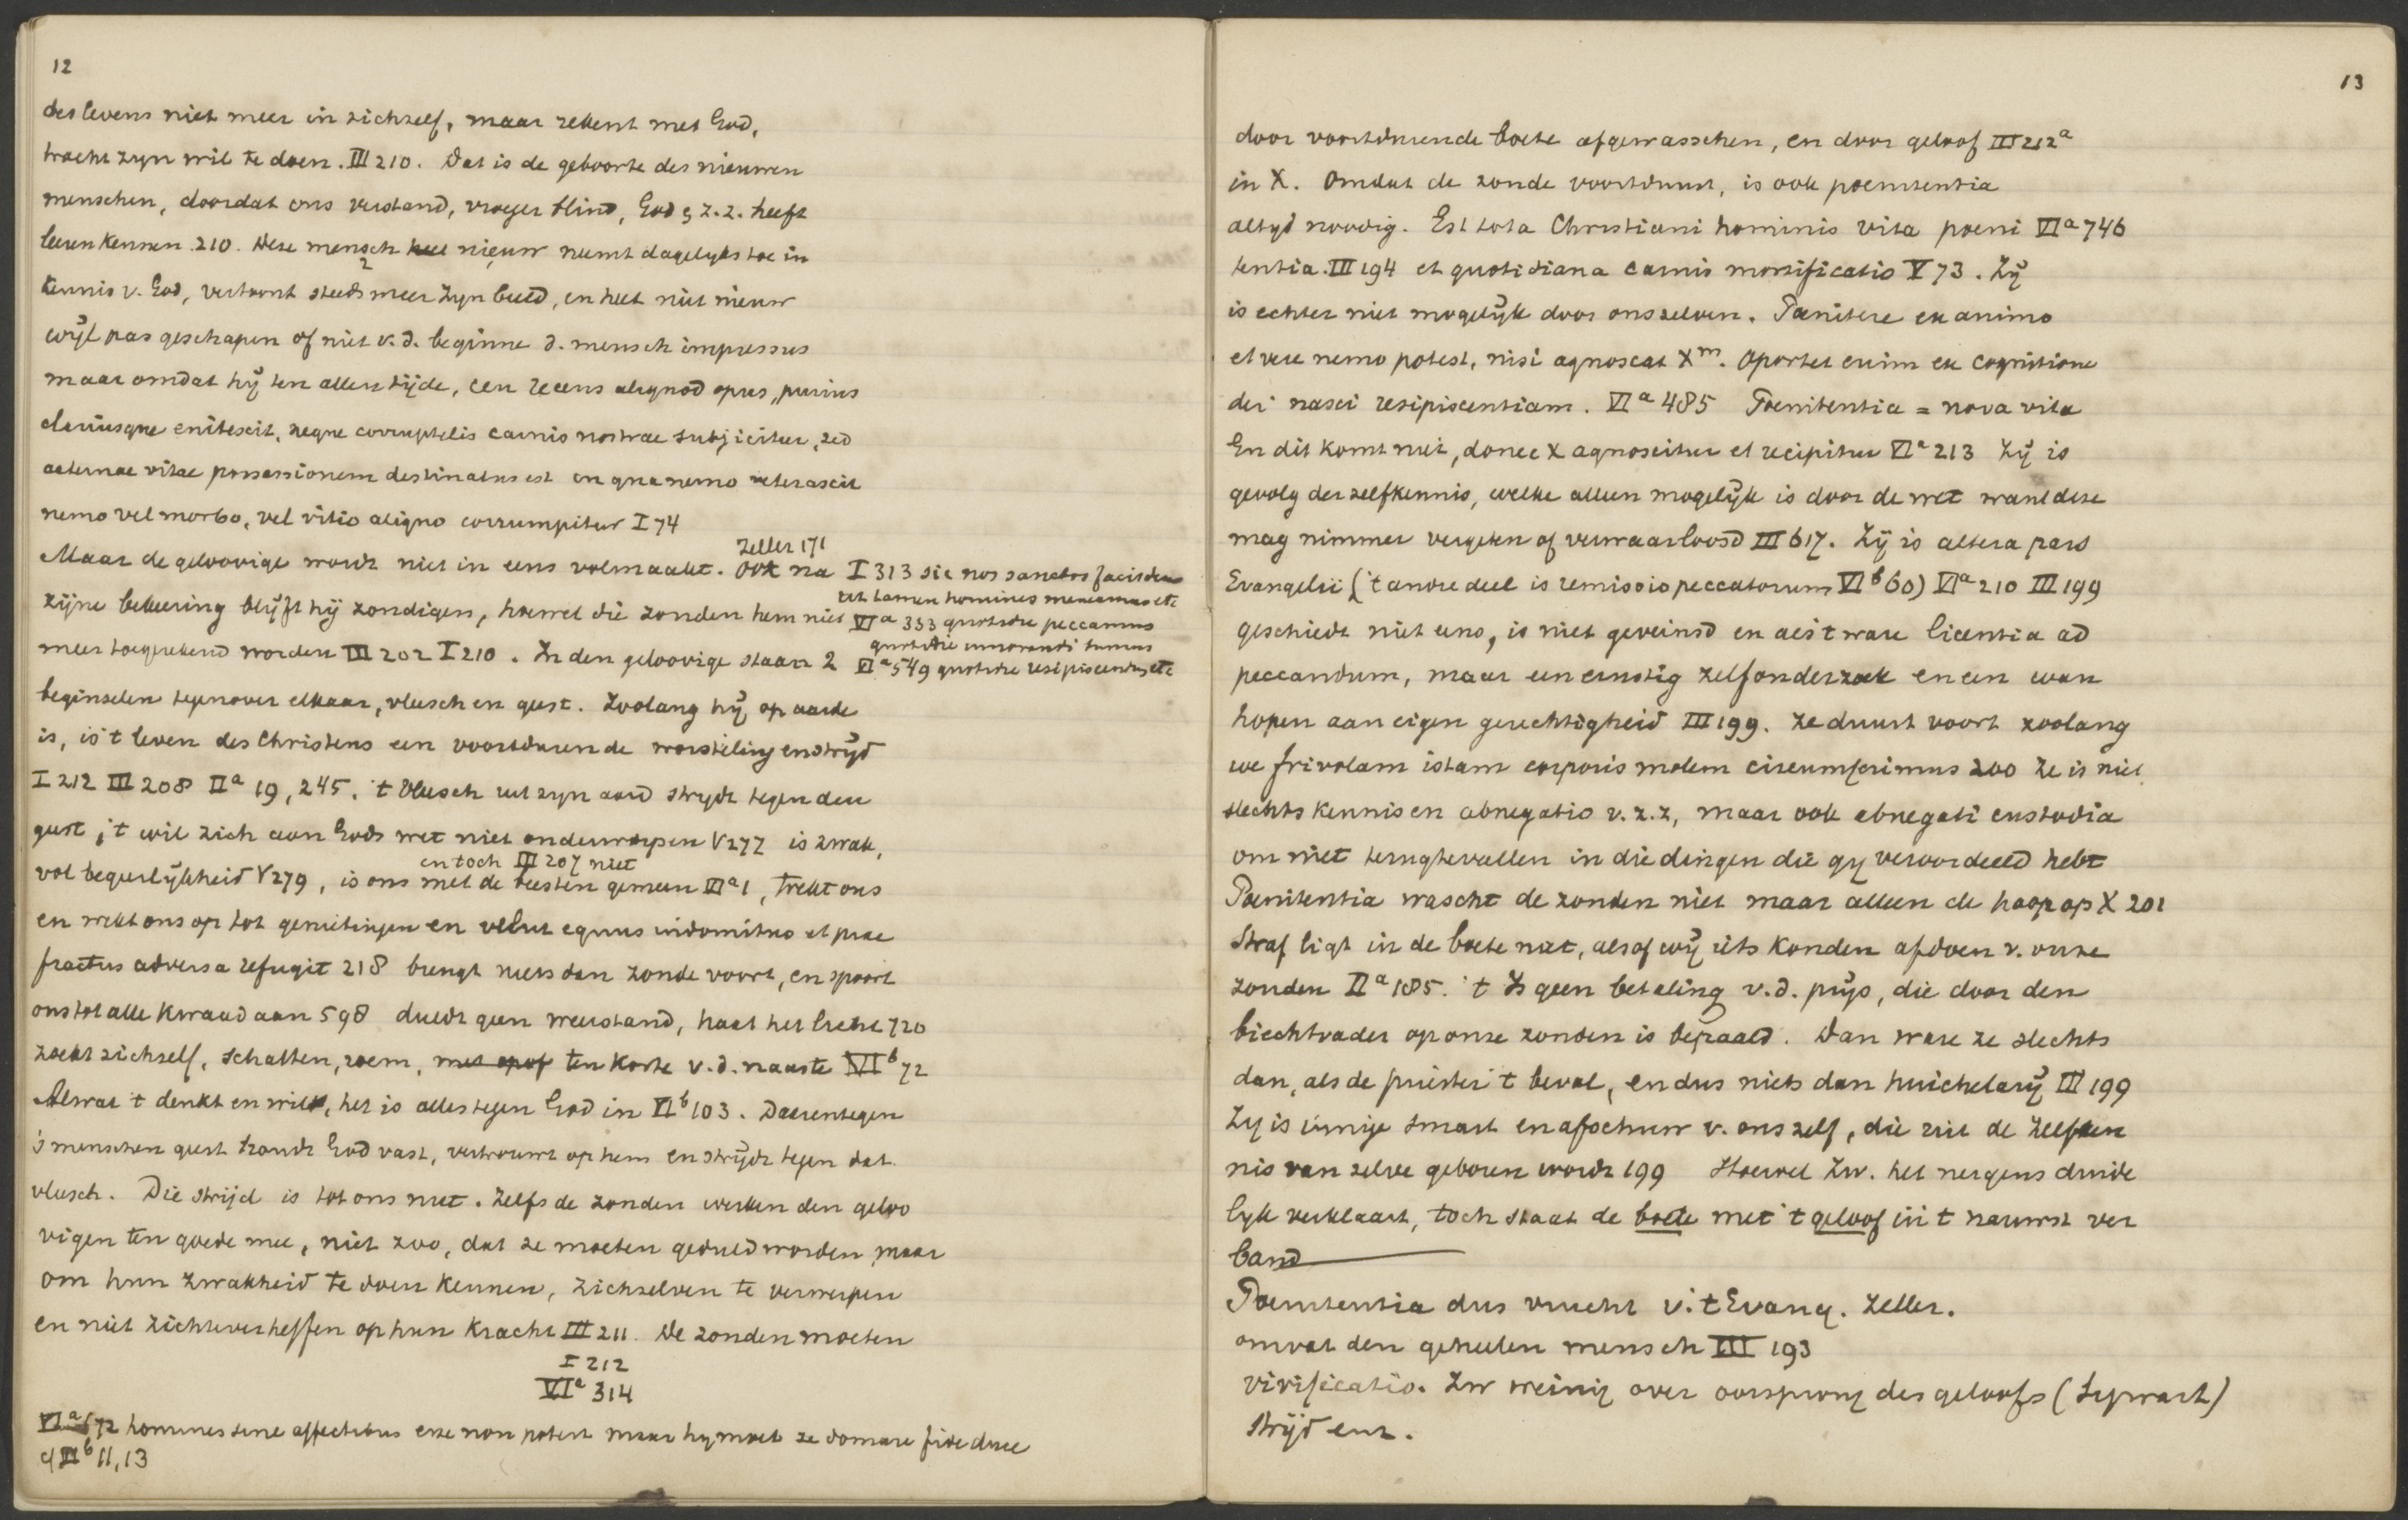 12
des levens niet meer in zichzelf, maar rekent met God,
tracht zyn wil te doen. III 210. Dat is de geboorte des nieuwen
menschen, doordat ons verstand, vroeger blind, God & z.z. heeft
leeren kennen 210. Deze mensch nieuw neemt dagelyks toe in
2
kennis v. God, vertoont steeds meer zyn beeld, en heet niet nieuw
wijl pas geschapen of niet v.d. beginne d. mensch impressus
maar omdat hij ten allen tijde, ceu recens aliquod opus, purius
clariusque enitescit, neque corruptelis carnis nostrae subjicitur, sed
aeternae vitae possessionem destinatus est in qua nemo veterascit
nemo vel morbo, vel vitio aliquo corrumpitur I 74
Zeller 171
Maar de geloovige wordt niet in eens volmaakt. Ook na I 313 sic nos sanctos facit deus
ut tamen homines maneamus etc
zijne bekeering blijft hij zondigen, hoewel die zonden hem niet VIa 333 quotidie peccamus
quotidie innovandi sumus
meer toegerekend worden III 202 I 210. In den geloovige staan 2 VIa 549 quotidie resipiscendum etc
beginselen tegenover elkaar, vleesch en geest. Zoolang hij op aarde
is, is 't leven des Christens een voortdurende worsteling en strijd
I 212 III 208 IIa 19, 245. 't Vleesch uit zyn aard strydt tegen den
geest, 't wil zich aan Gods wet niet onderwerpen V 277 is zwak,
en toch III 207 niet
vol begeerlijkheid V 279, is ons met de beesten gemeen VIa 1, trekt ons
en wekt ons op tot genietingen en velut equus indomitus et prae
fractus adversa refugit 218 brengt niets dan zonde voort, en spoort
ons tot alle kwaad aan 598 duldt geen weerstand, haat het licht 720
zoekt zichzelf, schatten, roem, ten koste v.d. naaste VIb 72
Al wat 't denkt en wil, het is alles tegen God in VIb 103. Daarentegen
's menschen geest houdt God vast, vertrouwt op hem en strijdt tegen dat
vleesch. Die strijd is tot ons nut. Zelfs de zonden werken den geloo
vigen ten goede mee, niet zoo, dat ze moeten geduld worden, maar
om hun zwakheid te doen kennen, zichzelven te verwerpen
en niet zich te verheffen op hun kracht III 211. De zonden moeten
I 212
VIa 314
VIa 172 homines sine affectibus esse non potest maar hy moet ze domare fide duce
cf VIb 11, 13
13
door voortdurende boete afgewasschen, en door geloof III 212a
in X. Omdat de zonde voortduurt, is ook poenitentia
altyd noodig. Est tota Christiani hominis vita poeni VIa 746
tentia. III 194 et quotidiana carnis mortificatio V 73. Zij
is echter niet mogelijk door ons zelven. Poenitere ex animo
et vere nemo potest, nisi agnoscat Xm. Oportet enim ex cognitione
dei nasci resipiscentiam. VIa 485 Poenitentia = nova vita
En dit komt niet, donec X agnoscitur et recipitur VIa 213 Zij is
gevolg der zelfkennis, welke alleen mogelijk is door de wet want deze
mag nimmer vergeten of verwaarloosd III 617. Zij is altera pars
Evangelii ('t andre deel is remissio peccatorum VIb 60) VIa 210 III 199
geschiedt niet eens, is niet geveinsd en als 't ware licentia ad
peccandum, maar een ernstig zelfonderzoek en een wan
hopen aan eigen gerechtigheid III 199. Ze duurt voort zoolang
we frivolam istam corporis molem circumferimus 200 Ze is niet
slechts kennis en abnegatio v.z.z, maar ook abnegati custodia
om niet terug te vallen in die dingen die gy veroordeeld hebt
Poenitentia wascht de zonden niet maar alleen de hoop op X 201
Straf ligt in de boete niet, alsof wij iets konden afdoen v. onze
zonden IIa 185. 't Is geen betaling v.d. prijs, die door den
biechtvader op onze zonden is bepaald. Dan ware ze slechts
dan, als de priester 't beval, en dus niets dan huichelarij III 199
Zy is innige smart en afschuw v. ons zelf, die uit de zelfken
nis van zelve geboren wordt 199 Hoewel Zw. het nergens duide
lyk verklaart, toch staat de boete met 't geloof in 't nauwst ver
band
Poenitentia dus vrucht v. 't Evang. Zeller.
omvat den geheelen mensch III 193
vivificatio. Zw weinig over oorsprong des geloofs (Sigwart)
Strijd enz.